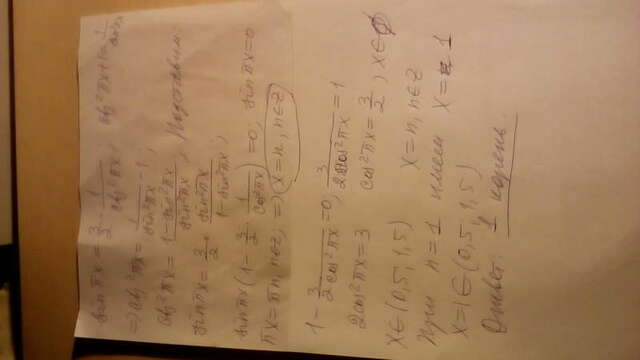 sin πx = 3/2 · 1/ctg²πx ; ctg²πx + 1 = 1/sin²πx
=> ctg²πx = 1/sin²πx - 1 ;
ctg²πx = (1 - sin²πx)/sin²πx , Подставим:
sin πx = 3/2 · sin²πx/(1 - sin²πx) ;
sin πx (1 - 3/2 · 1/cos²πx) = 0 ; sin πx = 0
πx = πn, n∈Z ; => x = n, n∈Z
1 - 3/(2cos²πx) = 0 ; 3/(2cos²πx) = 1
2cos²πx = 3 cos²πx = 3/2 , x∈∅
x∈(0,5, 1,5) x = n, n∈Z
При n = 1 имеем x = 1
x = 1 ∈ (0,5, 1,5)
Ответ: 1 корень.